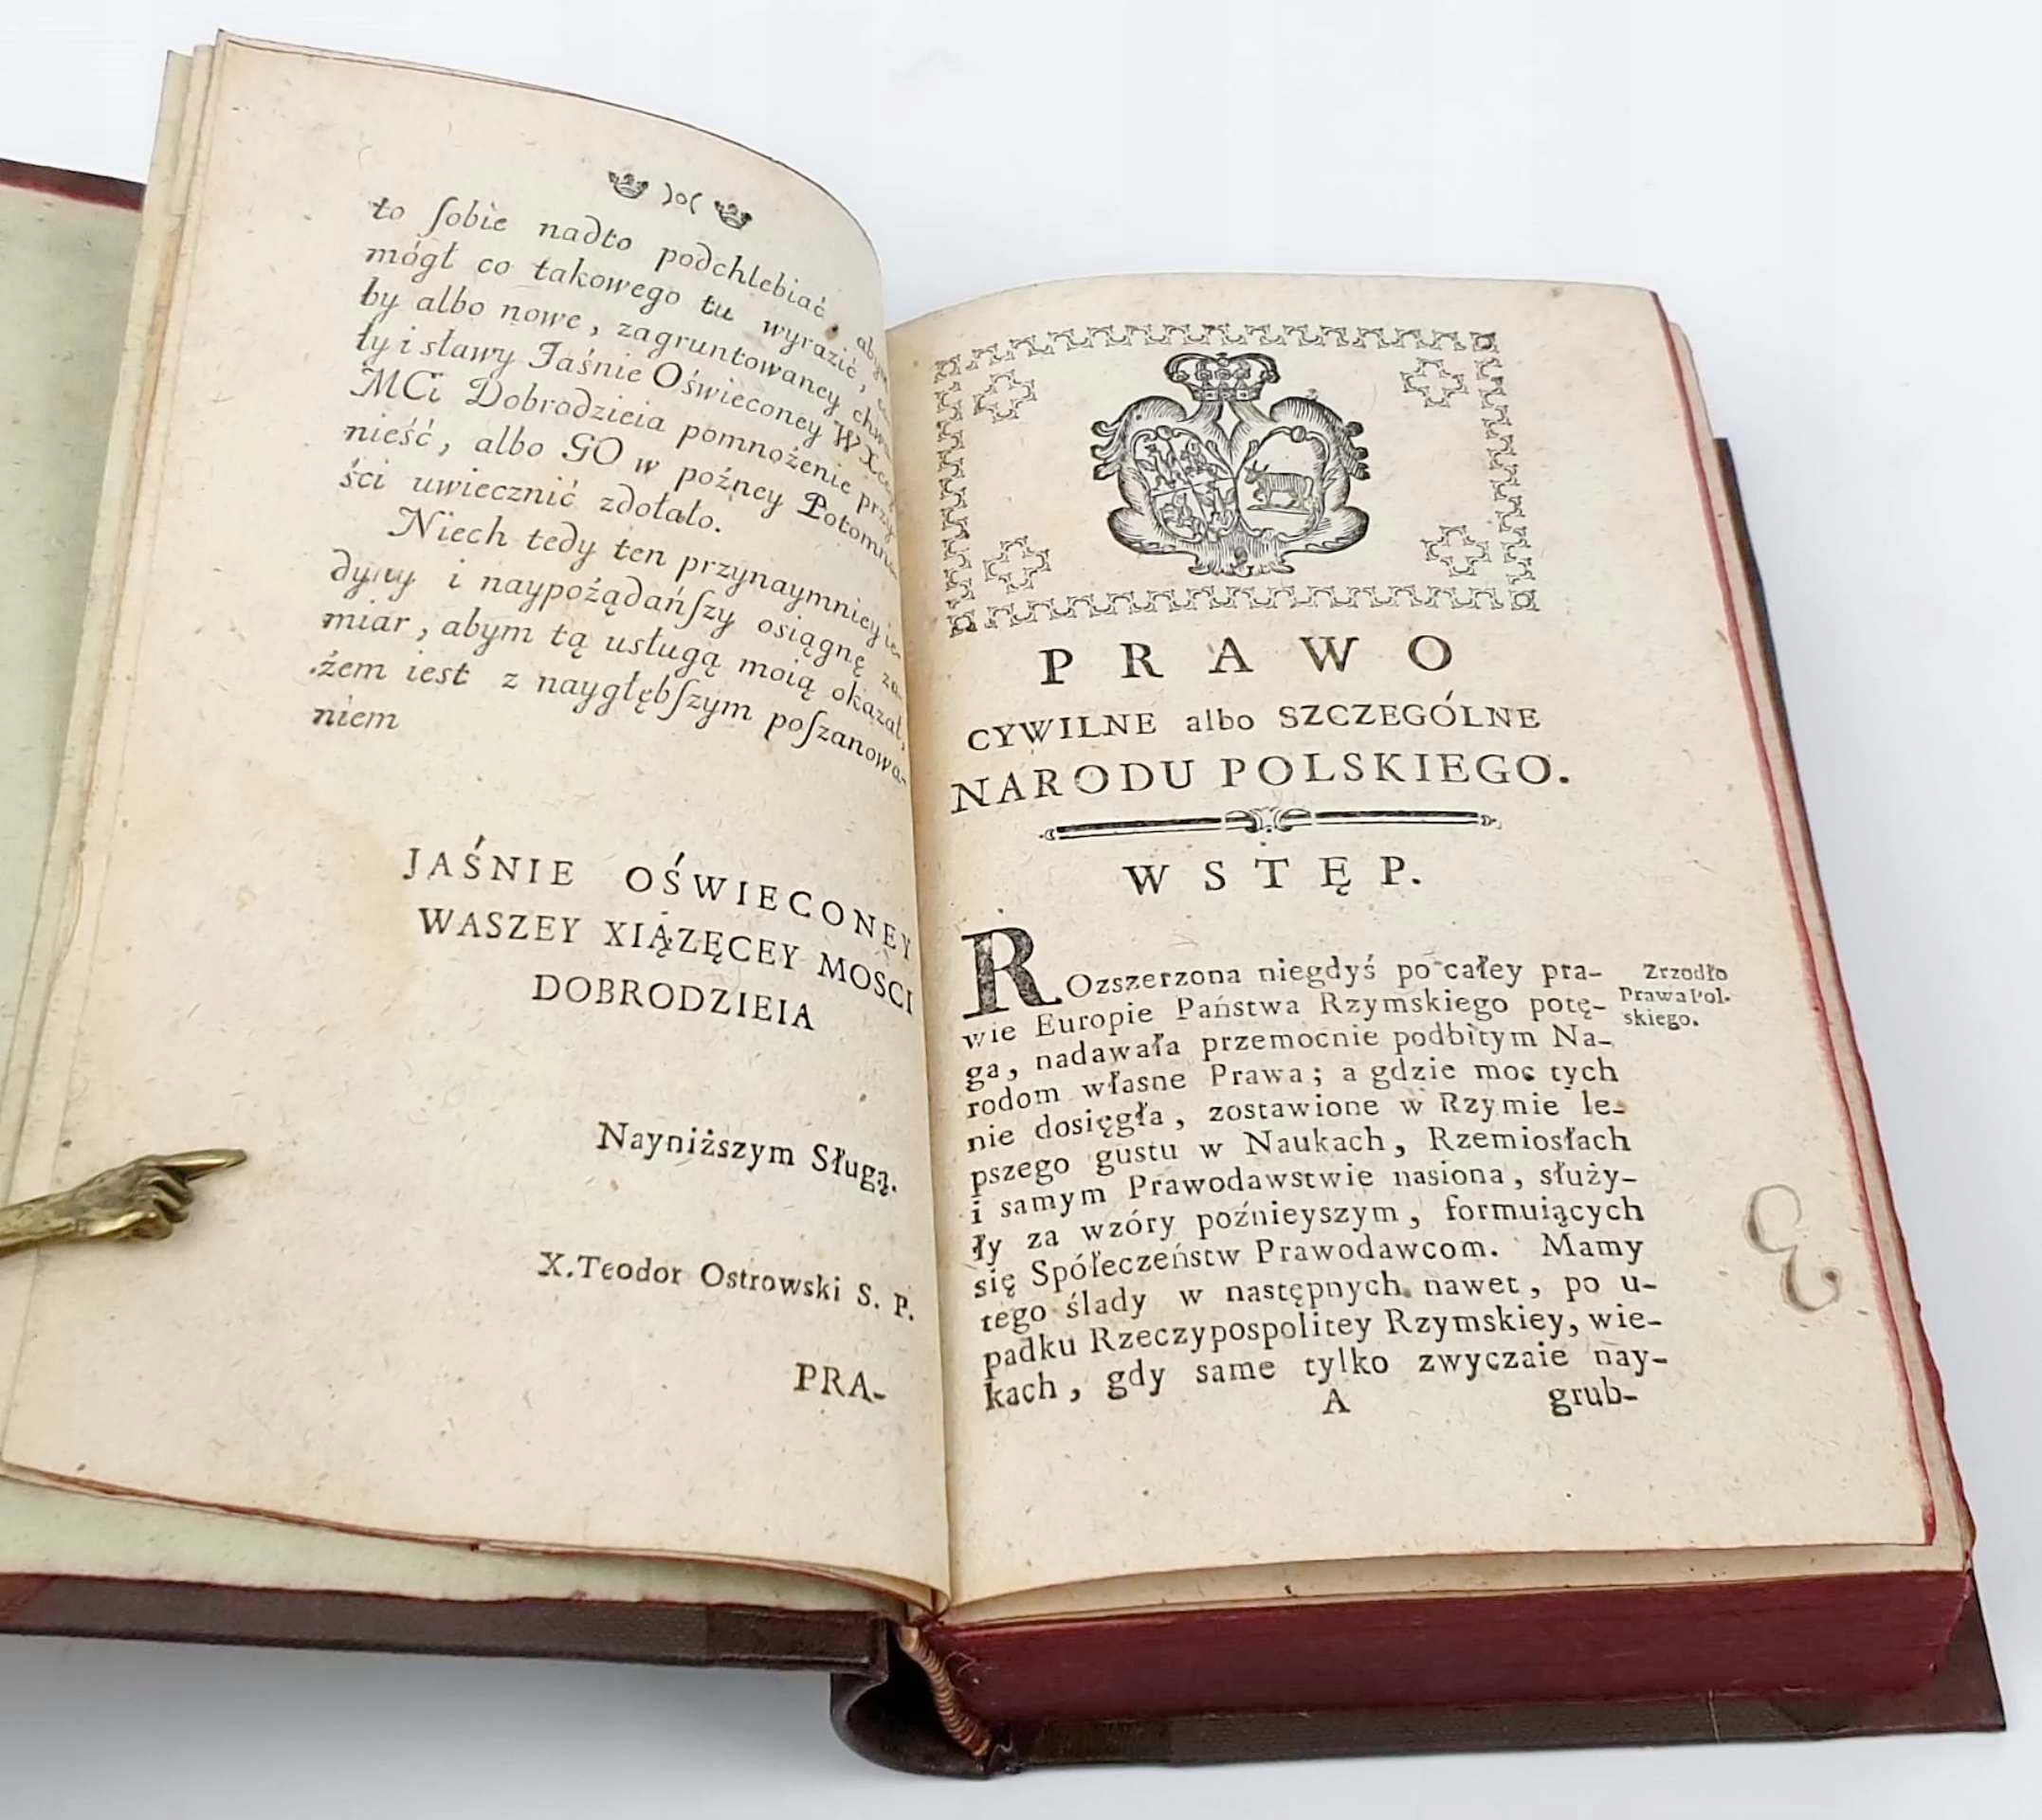 )o(
to ſobie nadto podchlebiać, abym
mógł co takowego tu wyrazić,
by albo nowe, zagruntowaney chwa
ły i sławy Jaśnie Oświeconey WXcey
MCi Dobrodzieia pomnożenie przy
nieść, albo GO w poźney Potomno
ści uwiecznić zdołało.
Niech tedy ten przynaymniey ie-
dyny i naypożądańſzy osiągnę za-
miar, abym tą usługą moią okazał,
żem iest z naygłębſzym poſzanowa-
niem
JAŚNIE OŚWIECONEY
WASZEY XIĄZĘCEY MOSCI
DOBRODZIEIA
Nayniższym Sługą.
X. Teodor Ostrowski S. P.
PRA-
PRAWO
CYWILNE albo SZCZEGÓLNE
NARODU POLSKIEGO.
WSTĘP.
ROzszerzona niegdyś po całey pra-
wie Europie Państwa Rzymskiego potę-
ga, nadawała przemocnie podbitym Na-
rodom własne Prawa; a gdzie moc tych
nie dosięgła, zostawione w Rzymie le-
pszego gustu w Naukach, Rzemiosłach
i samym Prawodawstwie nasiona, służy-
ły za wzóry poźnieyszym, formuiących
się Spółeczeństw Prawodawcom. Mamy
tego ślady w następnych nawet, po u-
padku Rzeczypospolitey Rzymskiey, wie-
kach, gdy same tylko zwyczaie nay-
A grub-
Zrzodło
Prawa Pol-
skiego.